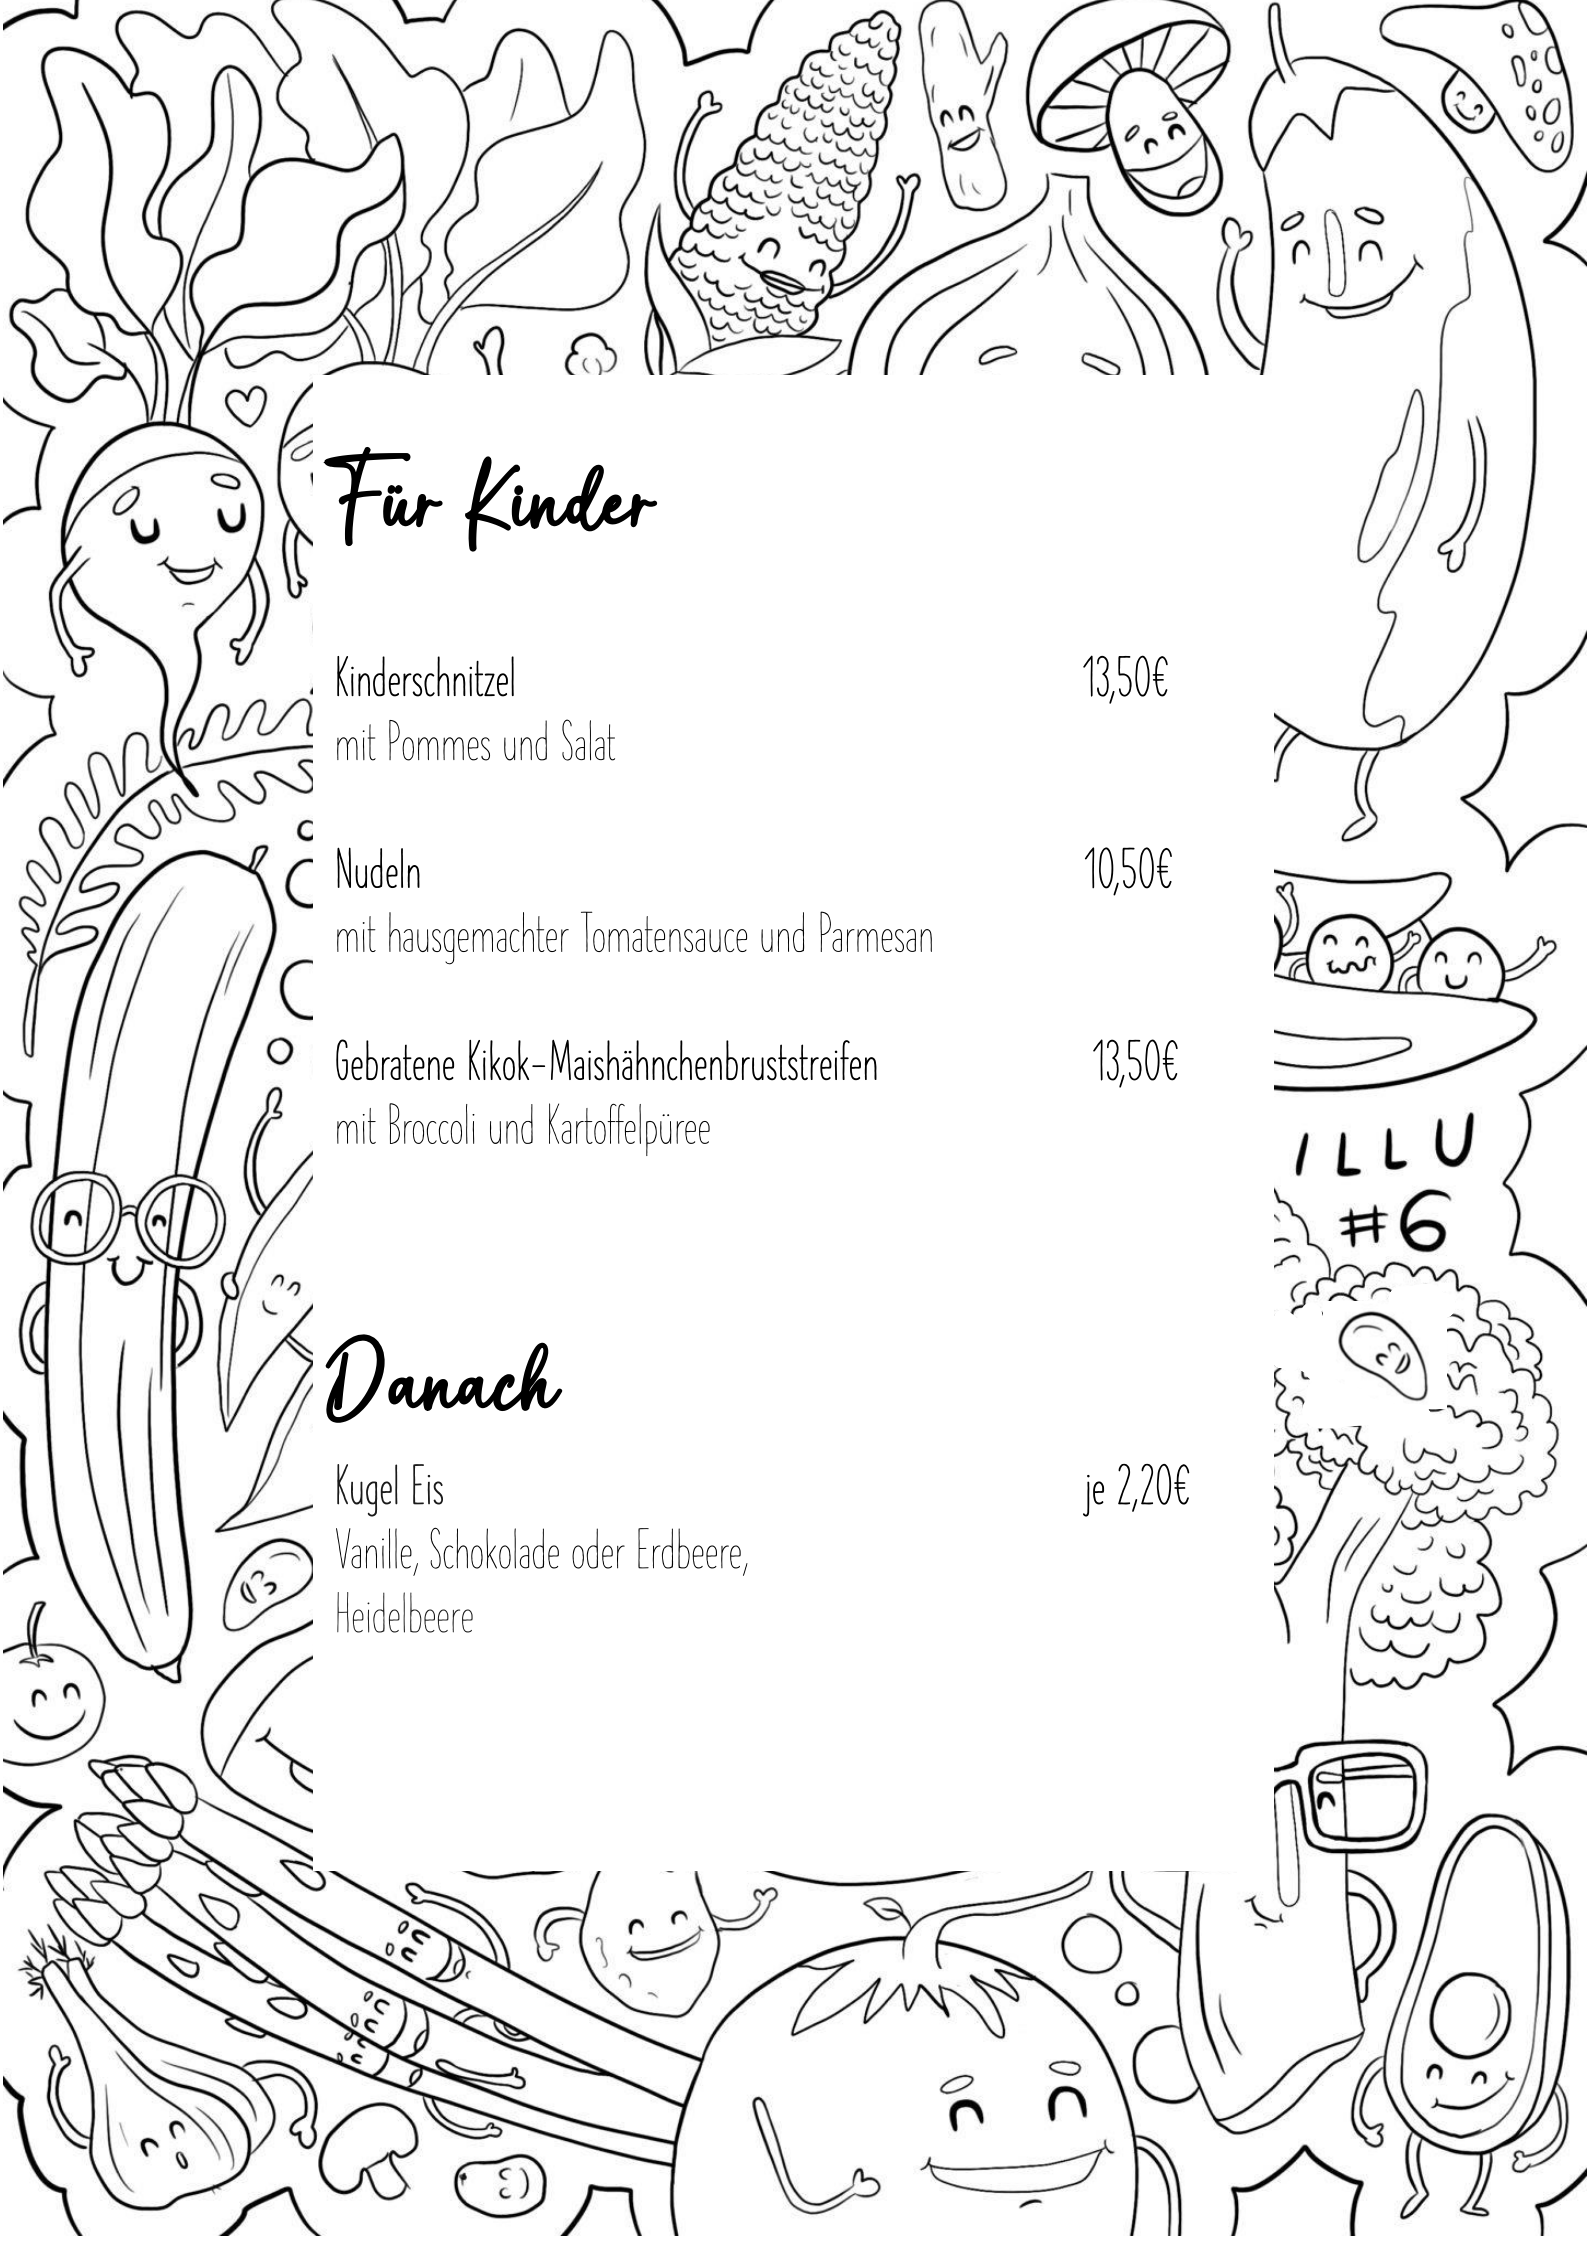 Für Kinder
Kinderschnitzel 13,50€
mit Pommes und Salat
Nudeln 10,50€
mit hausgemachter Tomatensauce und Parmesan
Gebratene Kikok-Maishähnchenbruststreifen 13,50€
mit Broccoli und Kartoffelpüree
ILLU
#6
Danach
Kugel Eis je 2,20€
Vanille, Schokolade oder Erdbeere,
Heidelbeere